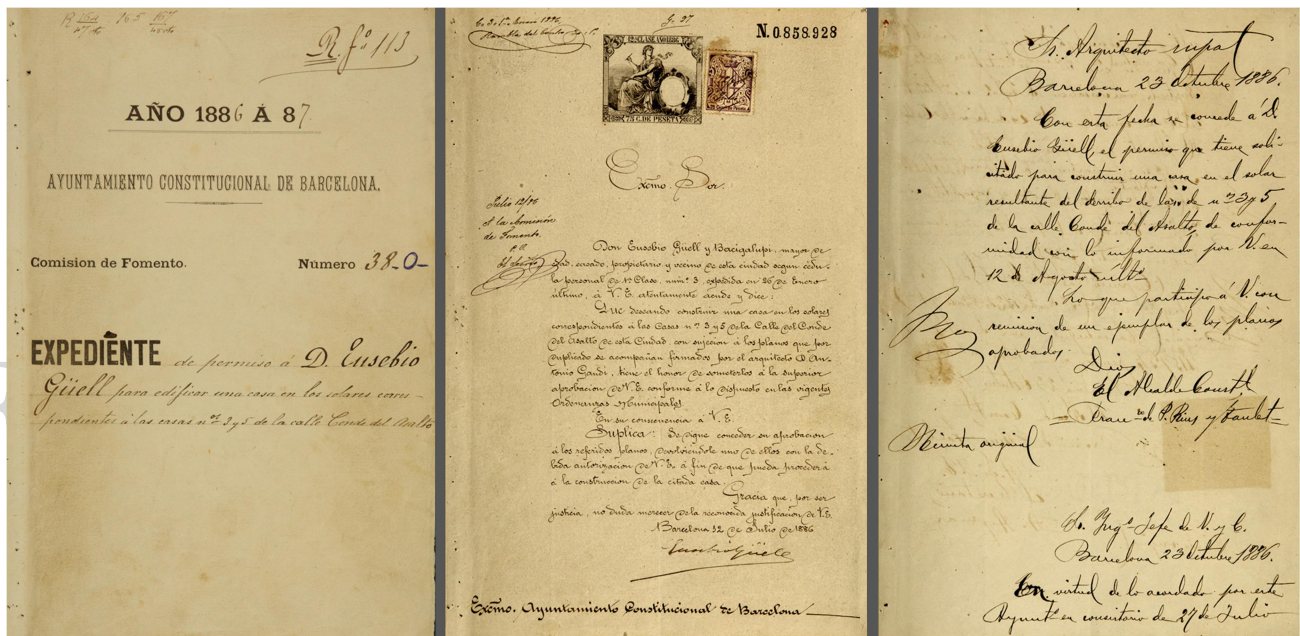 R. fº 113
AÑO 1886 Á 87
AYUNTAMIENTO CONSTITUCIONAL DE BARCELONA.
Comision de Fomento. Número 38-0-
EXPEDIENTE de permiso á D. Eusebio
Güell para edificar una casa en los solares corres-
pondientes á las casas nos. 3 y 5 de la calle Conde del Asalto
N. 0.858.928
12ª CLASE AÑO 1886
75 C. DE PESETA
Excmo. Sor.
Julio 12/86
A la Comisión
de Fomento.
Don Eusebio Güell y Bacigalupi, mayor de
edad, casado, propietario y vecino de esta ciudad segun cédu-
la personal de 1ª Clase, núm. 3, expedida en 26 de Enero
último, á V. E. atentamente acude y dice:
Que deseando construir una casa en los solares
correspondientes á las Casas nº 3 y 5 de la Calle del Conde
del Asalto de esta Ciudad, con sujecion á los planos que por
duplicado se acompañan firmados por el arquitecto D. An-
tonio Gaudí, tiene el honor de someterlos á la superior
aprobacion de V. E. conforme á lo dispuesto en las vigentes
Ordenanzas Municipales.
En su consecuencia á V. E.
Suplica: Se digne conceder su aprobacion
á los referidos planos, devolviéndole uno de ellos con la de-
bida autorizacion de V. E. á fin de que pueda proceder á
la construccion de la citada casa.
Gracia que, por ser
justicia, no duda merecer de la reconocida justificacion de V. E.
Barcelona 12 de Julio de 1886
Eusebio Güell
Excmo. Ayuntamiento Constitucional de Barcelona
Sr. Arquitecto
Barcelona 23 Octubre 1886.
Con esta fecha se concede á D.
Eusebio Güell, el permiso que tiene soli-
citado para construir una casa en el solar
resultante del derribo de las de nº 3 y 5
de la calle Conde del Asalto, de confor-
midad con lo informado por V. en
12 de Agosto últº
Lo que participo á V. con
remision de un ejemplar de los planos
aprobados.
Dios
El Alcalde Constl.
Francº de P. Rius y Taulet
Minuta original
Sr. Ingº Jefe de V. y C.
Barcelona 23 Octubre 1886.
En virtud de lo acordado por este
Ayuntº en consistorio de 27 de Julio